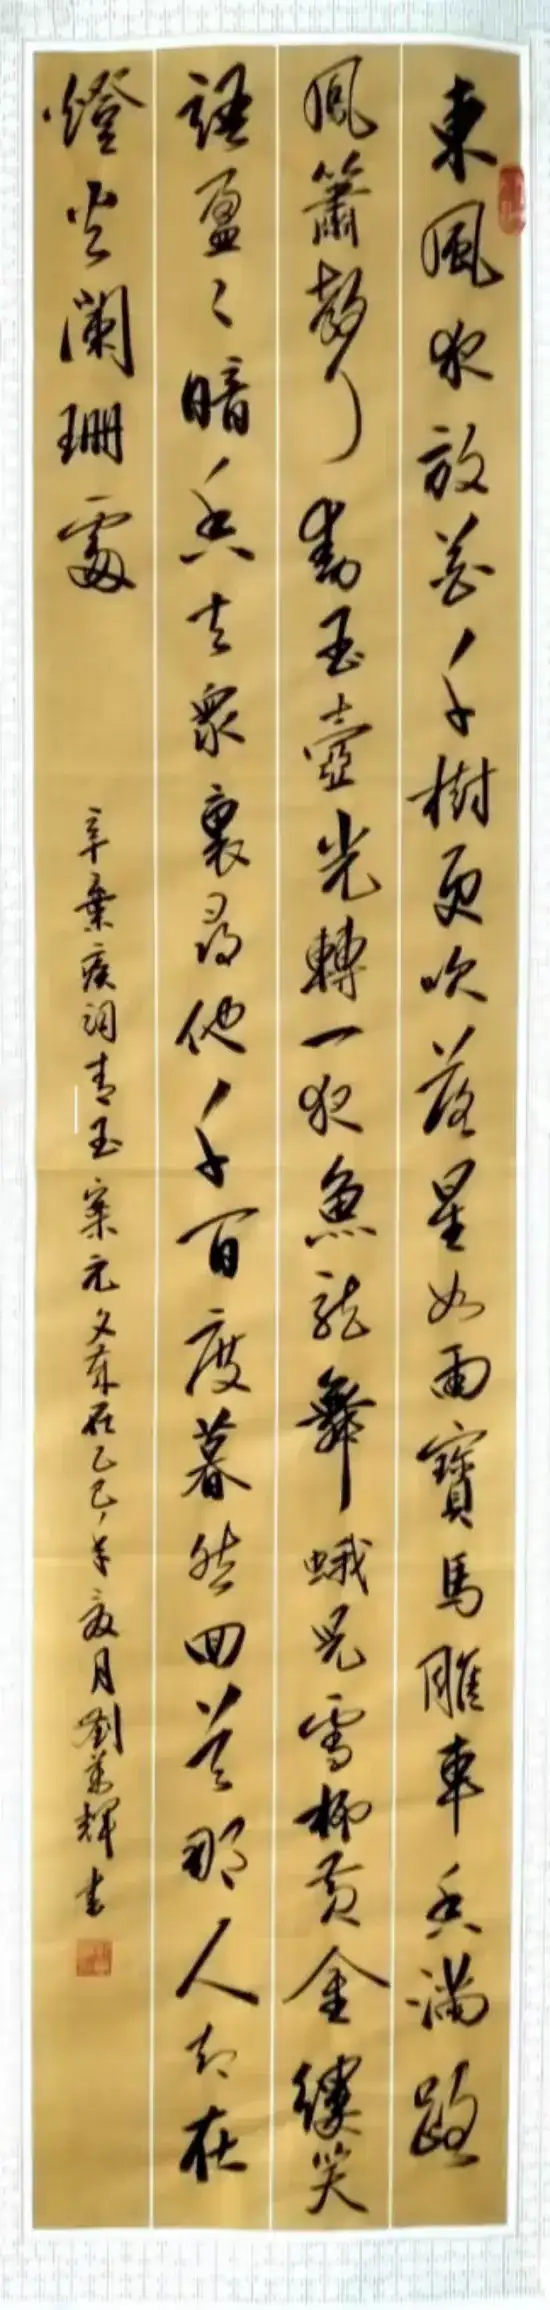 東風夜放花千樹更吹落星如雨寶馬雕車香滿路
鳳簫聲動玉壺光轉一夜魚龍舞蛾兒雪柳黃金縷笑
語盈〻暗香去衆裏尋他千百度暮然回首那人却在
燈火闌珊處
辛棄疾詞青玉案元夕歲在乙巳年夏月劉輝書